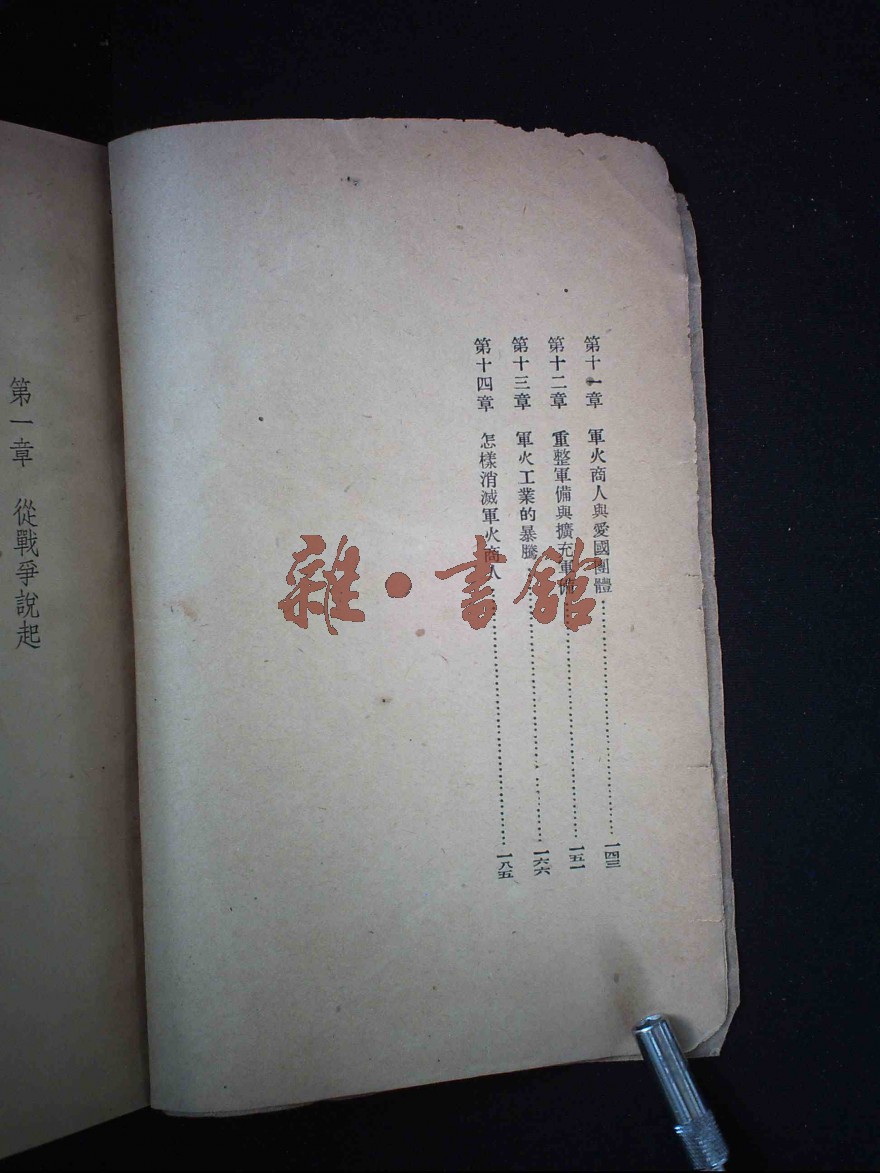 第十一章　軍火商人與愛國團體……一四三
第十二章　重整軍備與擴充軍備……一五一
第十三章　軍火工業的暴騰……一六六
第十四章　怎樣消滅軍火商人……一八五
第一章　從戰爭說起
雜·書館